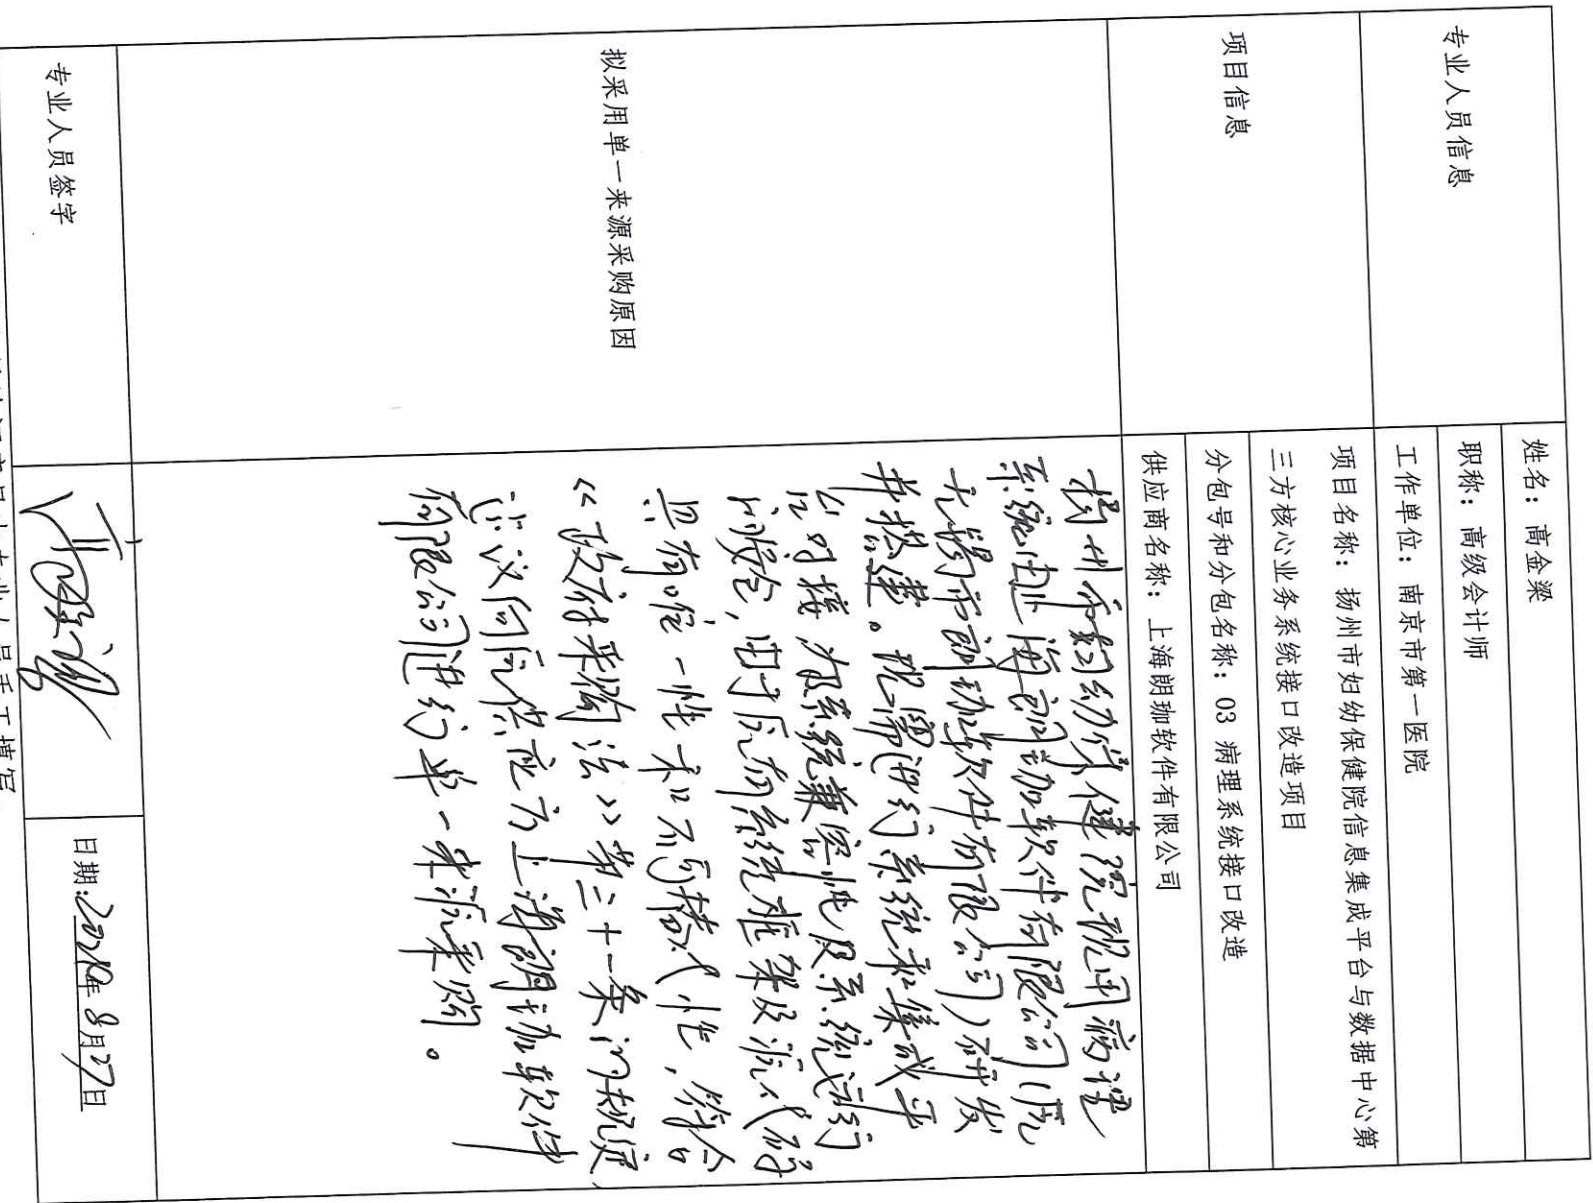 专业人员信息
姓名：高金梁
职称：高级会计师
工作单位：南京市第一医院
项目信息
项目名称：扬州市妇幼保健院信息集成平台与数据中心第
三方核心业务系统接口改造项目
分包号和分包名称：03 病理系统接口改造
供应商名称：上海朗珈软件有限公司
拟采用单一来源采购原因
扬州市妇幼保健院现用病理
系统由上海朗珈软件有限公司（原
无锡市朗珈软件有限公司）研发
并搭建。现需进行系统和集成平
台对接，为了系统兼容性及系统运行
的安全，由于原有系统框架及源代码
具有唯一性和不可替代性，符合
《政府采购法》第三十一条的规定，
建议向原供应方上海朗珈软件
有限公司进行单一来源采购。
专业人员签字
日期：2024年8月27日